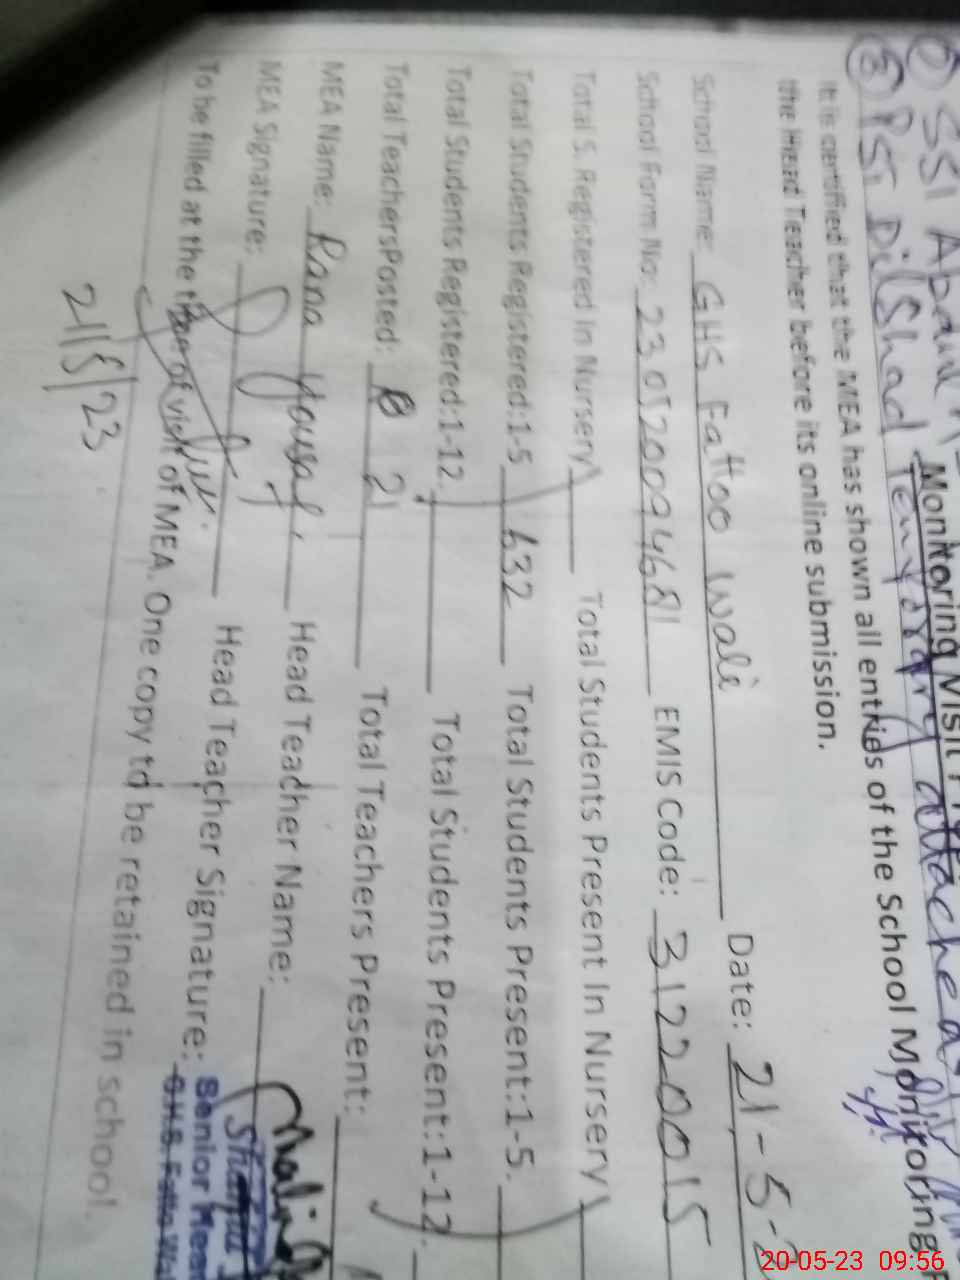 ① SSI Abdul
② PST Dilshad Temporary attached
Monitoring Visit
It is certified that the MEA has shown all entries of the School Monitoring
the Head Teacher before its online submission.
School Name: GHS Fattoo Wali Date: 21-5-2
School Form No: EMIS Code: 31220015
Total S. Registered In Nursery Total Students Present In Nursery
Total Students Registered:1-5 632 Total Students Present:1-5.
Total Students Registered:1-12. Total Students Present:1-12.
Total TeachersPosted: 21 Total Teachers Present:
MEA Name: Rana Yousaf Head Teacher Name:
MEA Signature: Head Teacher Signature:
Senior Head
G.H.S. Fattu Wal
To be filled at the time of visit of MEA. One copy to be retained in school.
21/5/23
20-05-23 09:56